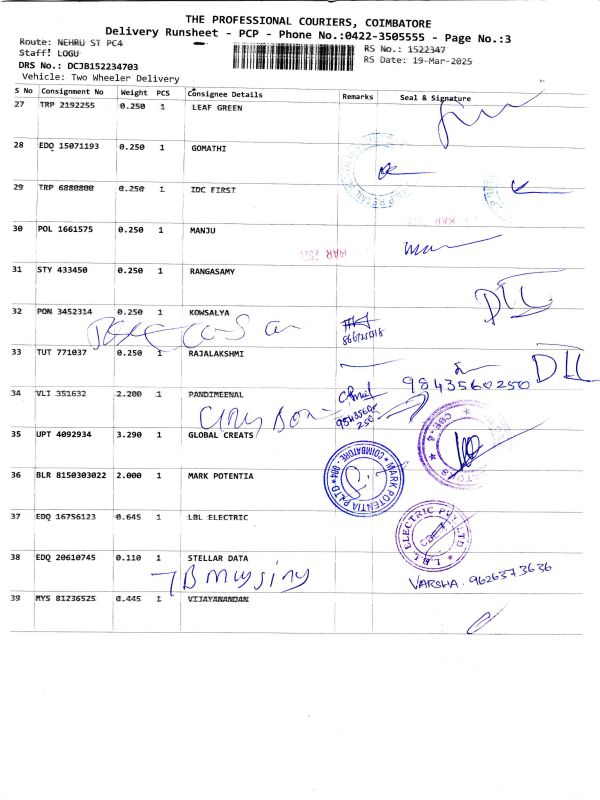 THE PROFESSIONAL COURIERS, COIMBATORE
Delivery Runsheet - PCP - Phone No.:0422-3505555 - Page No.:3
Route: NEHRU ST PC4
RS No.: 1522347
Staff: LOGU
RS Date: 19-Mar-2025
DRS No.: DCJB152234703
Vehicle: Two Wheeler Delivery
S No Consignment No Weight PCS Consignee Details Remarks Seal & Signature
27 TRP 2192255 0.250 1 LEAF GREEN
28 EDQ 15071193 0.250 1 GOMATHI
29 TRP 6880800 0.250 1 IDC FIRST
30 POL 1661575 0.250 1 MANJU
MAR
31 STY 433450 0.250 1 RANGASAMY
32 PON 3452314 0.250 1 KOWSALYA
33 TUT 771037 0.250 1 RAJALAKSHMI
9843560250
34 VLI 351632 2.200 1 PANDIMEENAL
35 UPT 4092934 3.290 1 GLOBAL CREATS
36 BLR 8150303022 2.000 1 MARK POTENTIA
MARK POTENTIA P LTD * COIMBATORE - 004 *
37 EDQ 16756123 0.645 1 LBL ELECTRIC
L.B.L ELECTRIC PVT LTD
38 EDQ 20610745 0.110 1 STELLAR DATA
VARSHA. 9626373636
39 MYS 81236525 0.445 1 VIJAYANANDAN